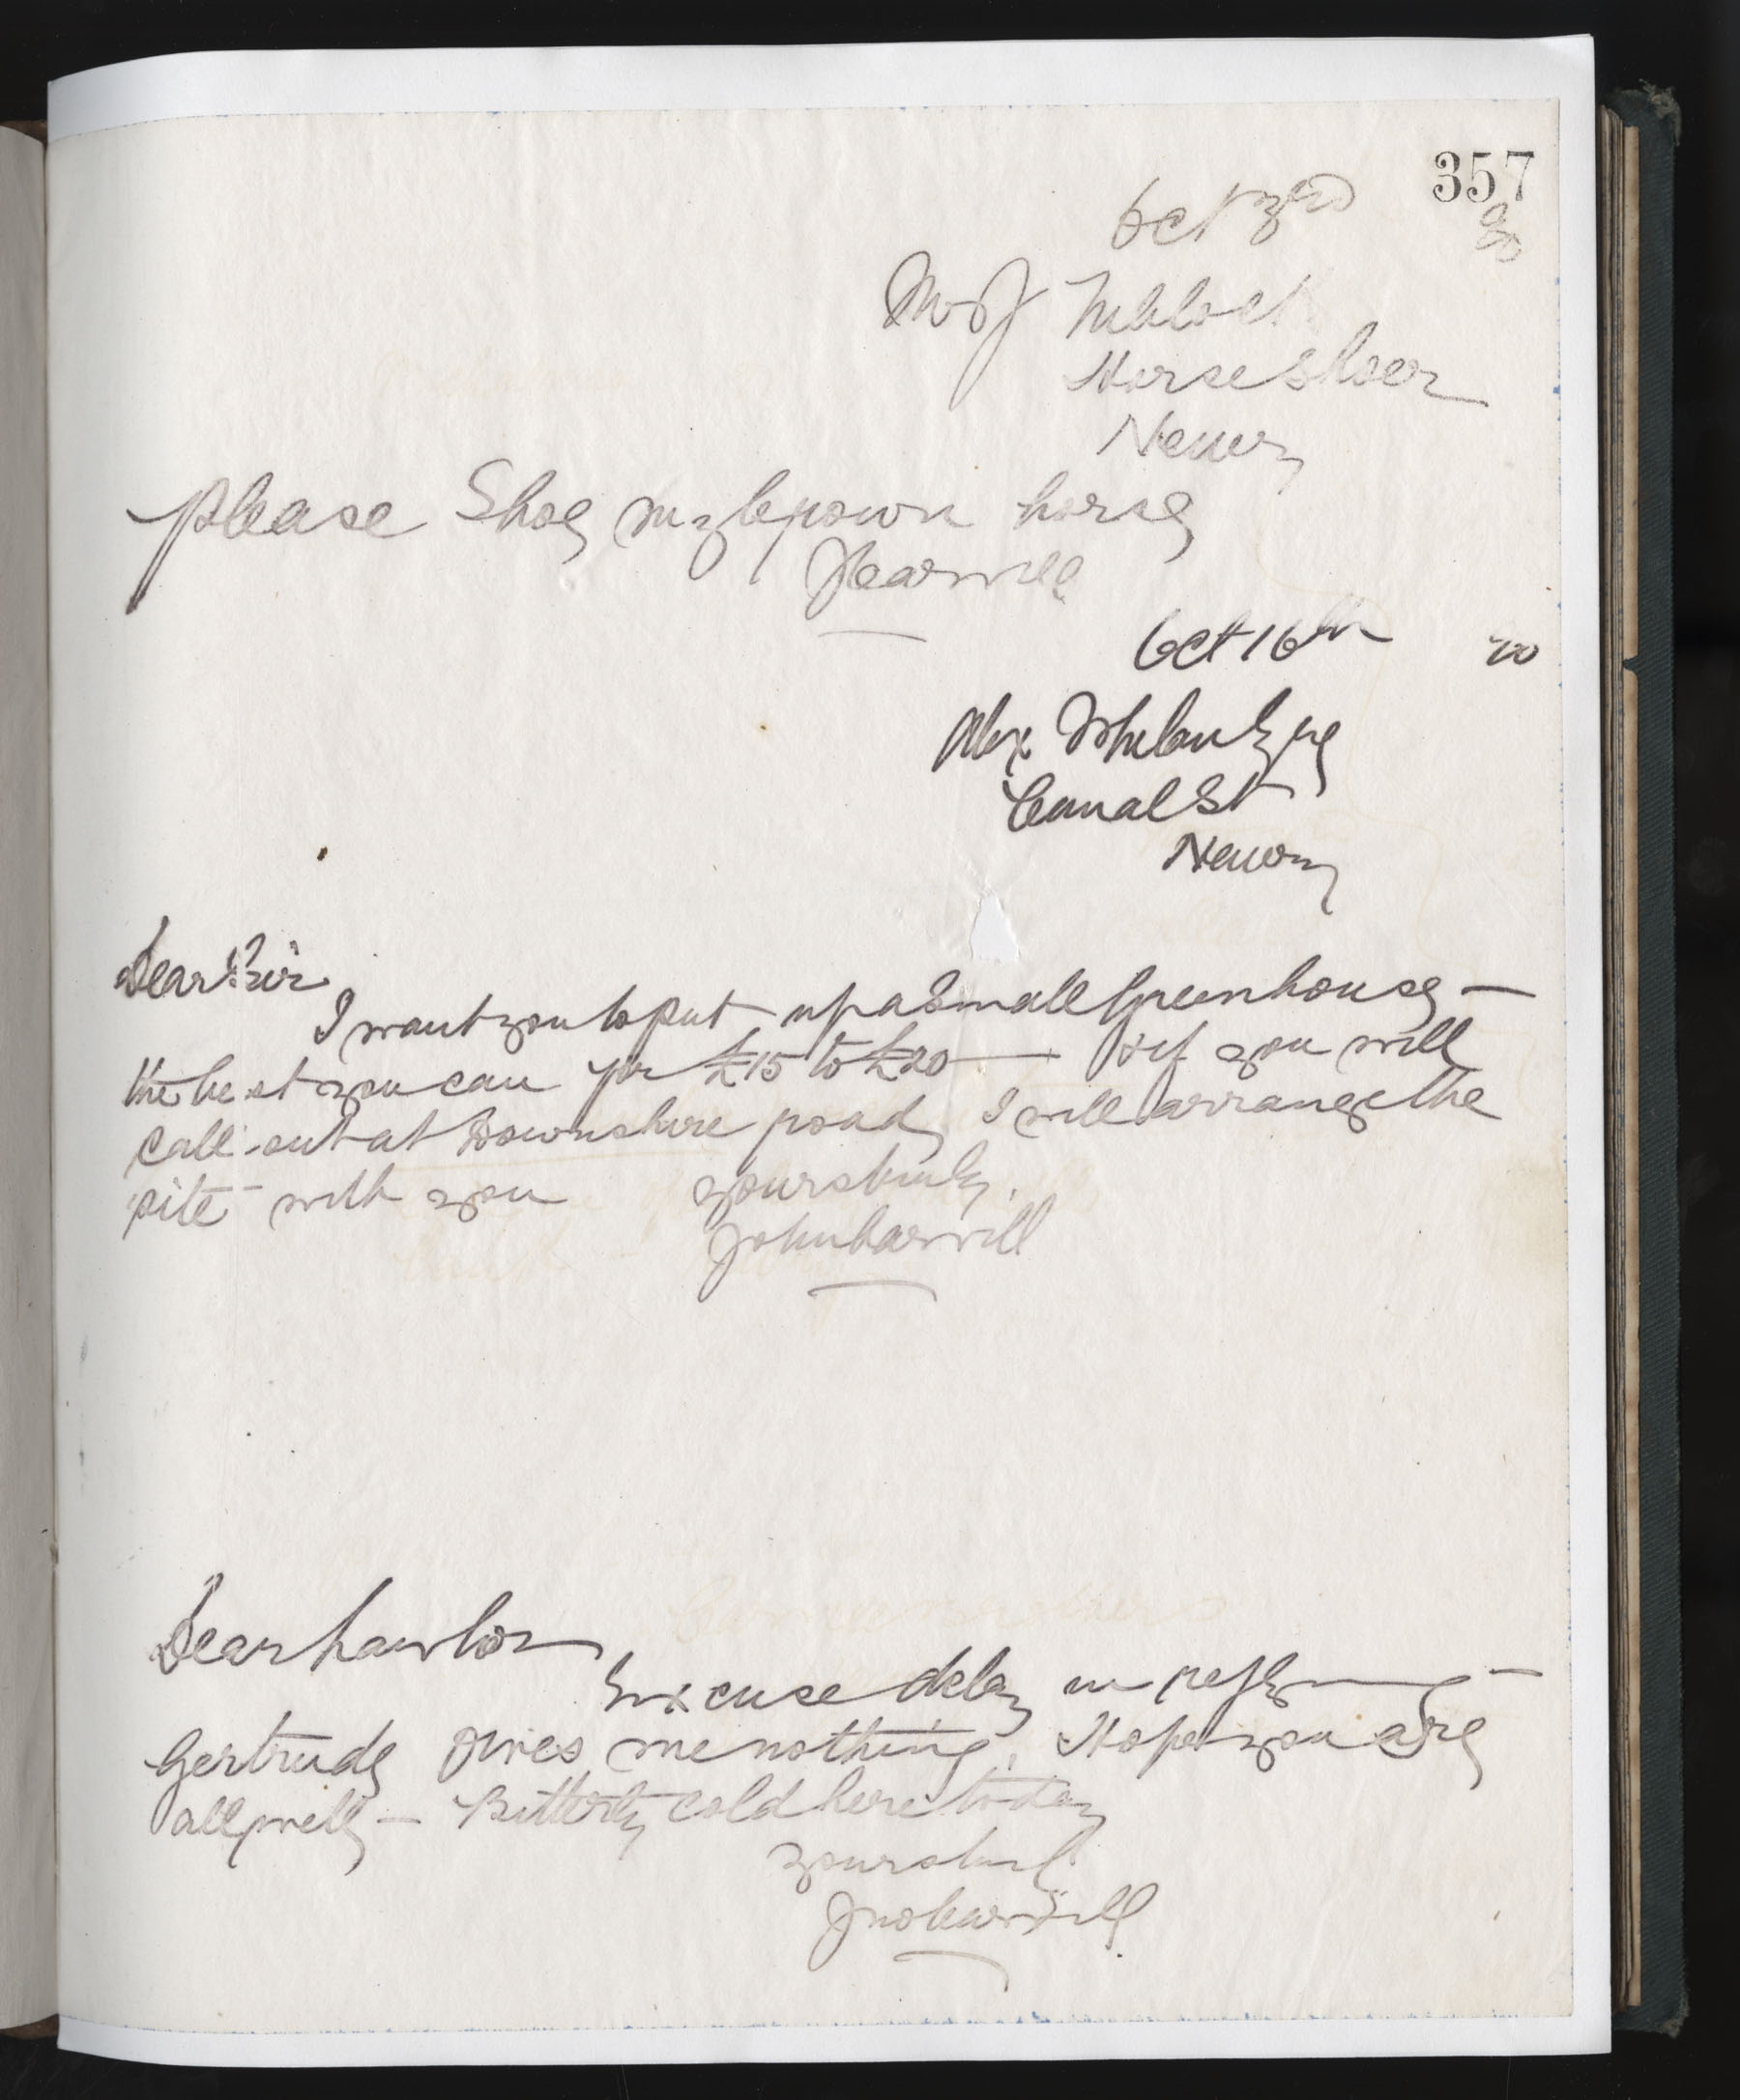 357
Oct 3rd 90
Mr J
Horse Shoer
Newry
please Shoe my brown horse
JCarvill
Oct 16th 90
Alex Whelan Esq
Canal St
Newry
Dear Sir
I want you to put up a Small Greenhouse —
the best you can for £15 to £20 — & if you will
Call out at Downshire road I will arrange the
site with you yours truly,
John Carvill
Dear Lawlor
Excuse delay in reply —
Gertrude owes me nothing, Hope you are
all well — Bitterly cold here today
yours truly
Jno Carvill